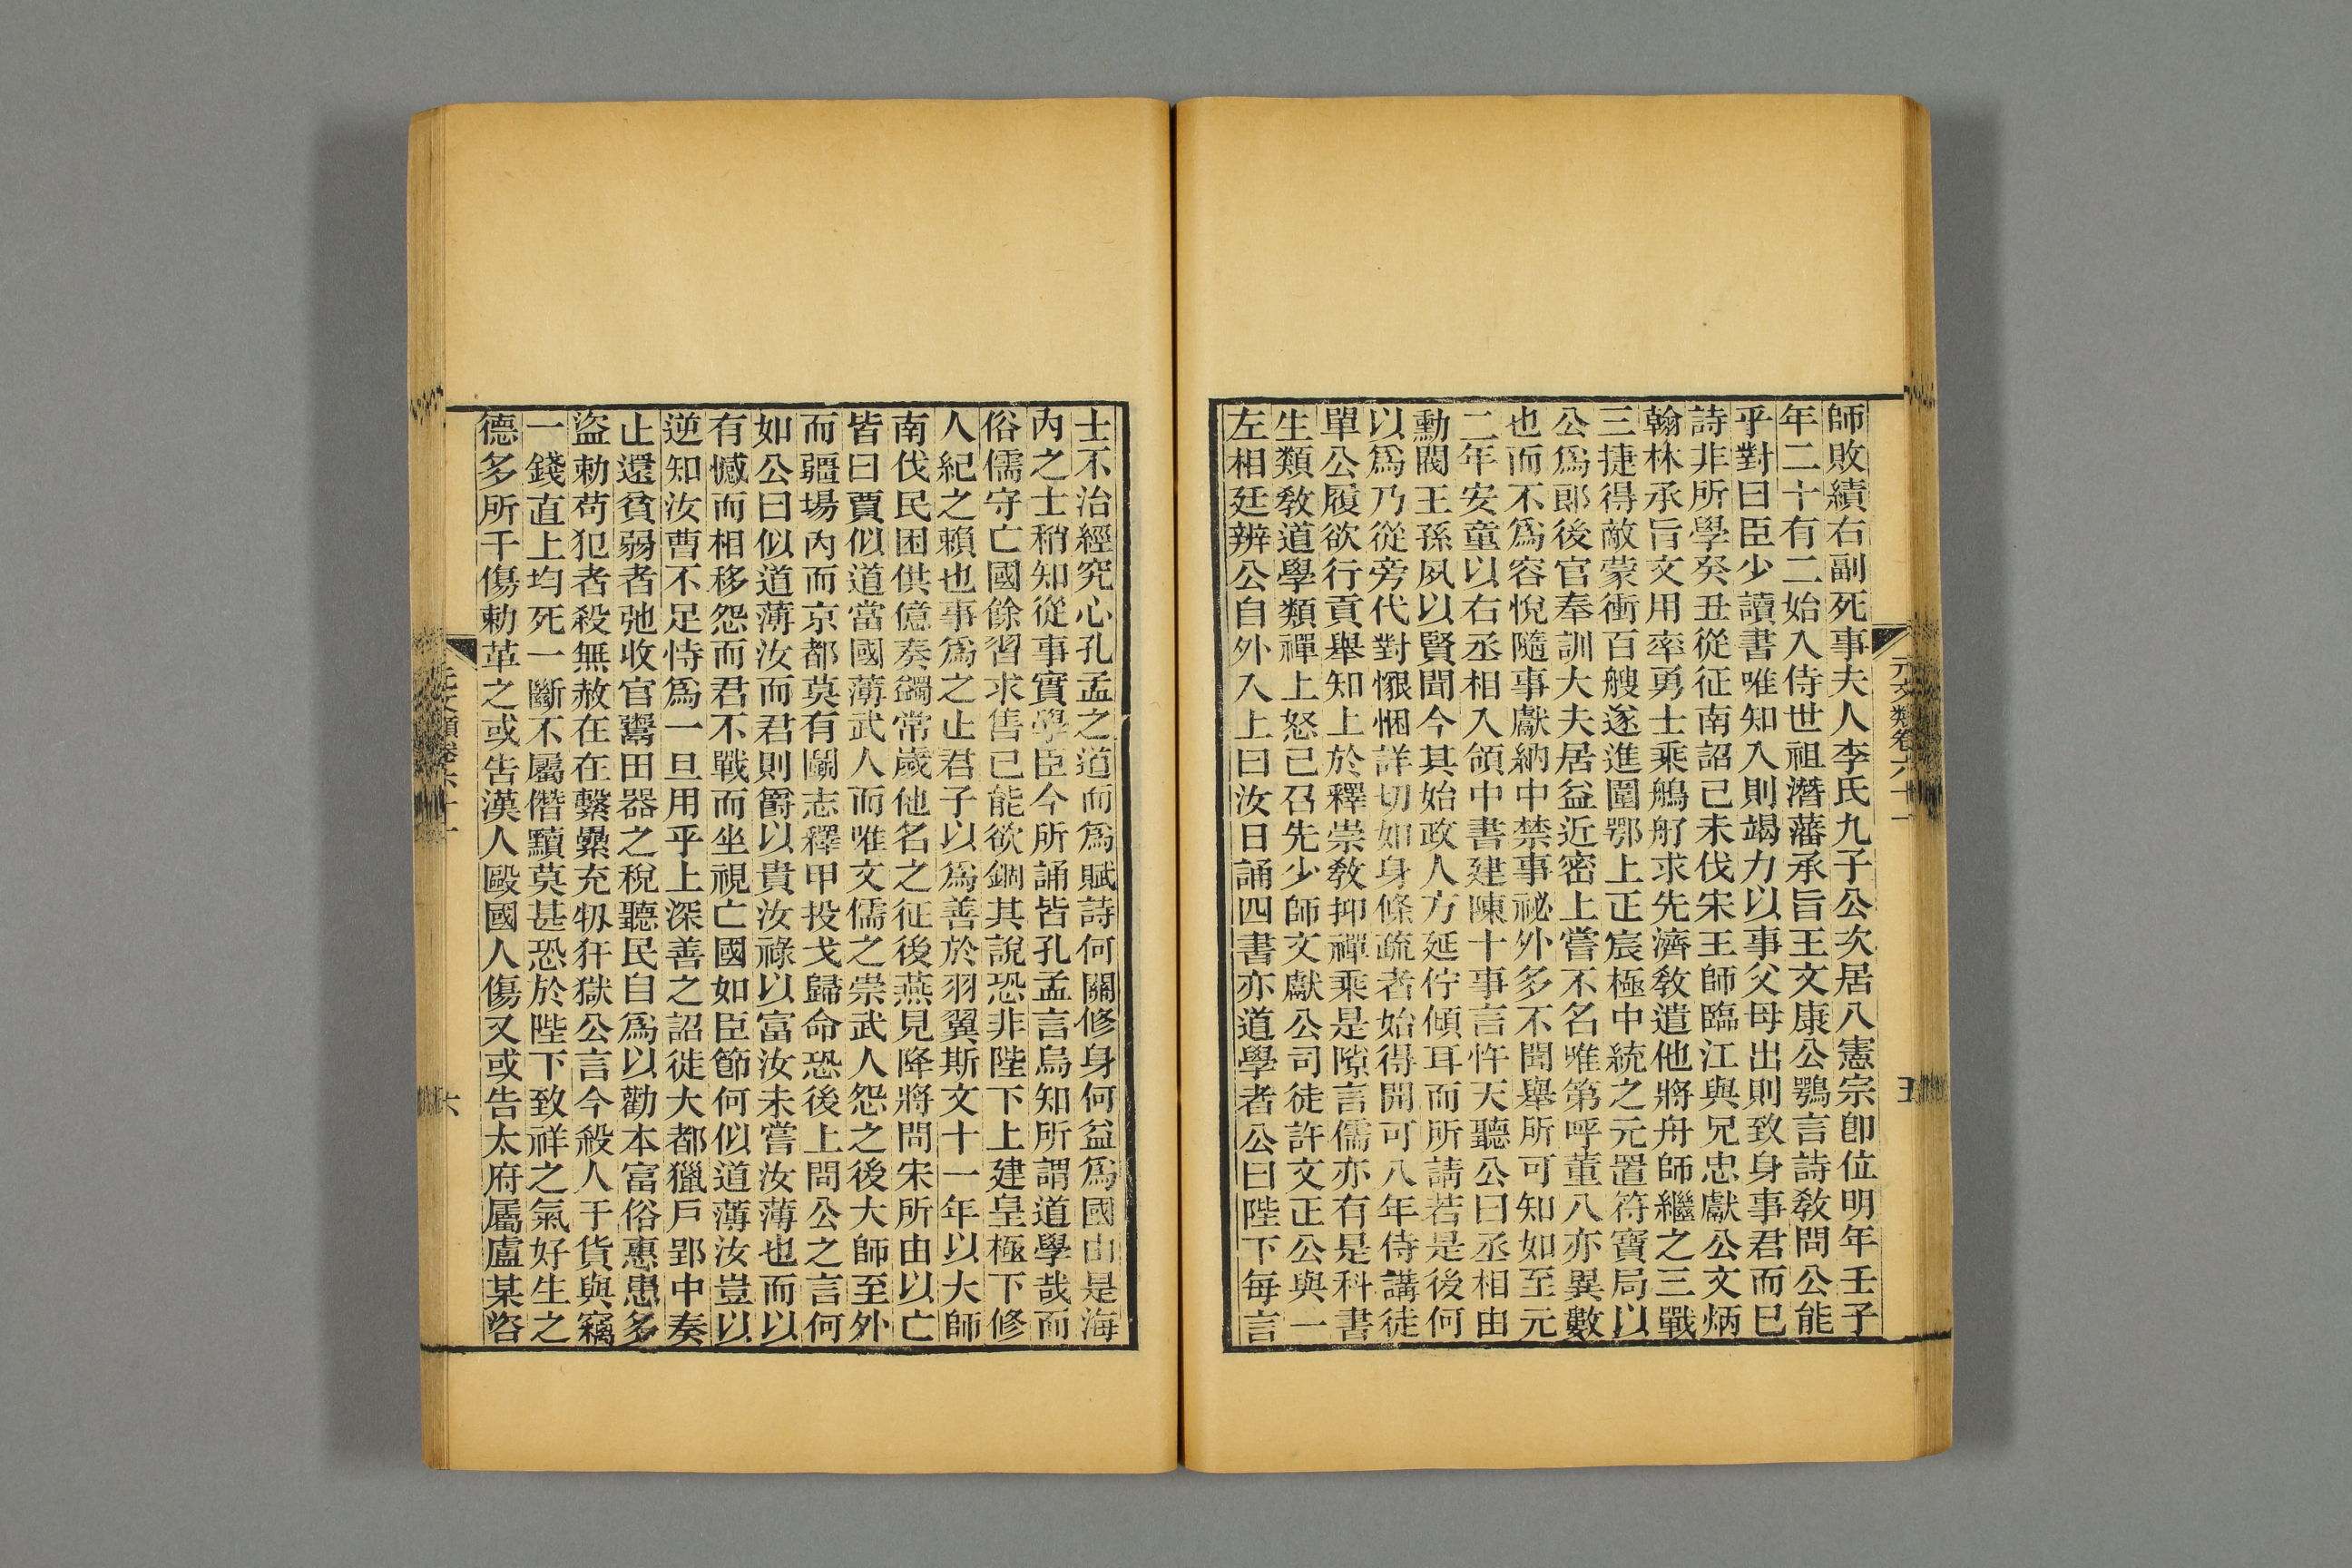 師敗績右副死事夫人李氏九子公次居八憲宗卽位明年壬子
年二十有二始入侍世祖潛藩承旨王文康公鶚言詩敎問公能
乎對曰臣少讀書唯知入則竭力以事父母出則致身事君而已
詩非所學癸丑從征南詔己未伐宋王師臨江與兄忠獻公文炳
翰林承旨文用率勇士乘鵃舠求先濟敎遣他將舟師繼之三戰
三捷得敵蒙衝百艘遂進圍鄂上正宸極中統之元置符寶局以
公爲郎後官奉訓大夫居益近密上嘗不名唯第呼董八亦異數
也而不爲容悅隨事獻納中禁事祕外多不聞舉所可知如至元
二年安童以右丞相入領中書建陳十事言忤天聽公曰丞相由
勳閥王孫夙以賢聞今其始政人方延佇傾耳而所請若是後何
以爲乃從旁代對懇悃詳切如身條疏者始得開可八年侍講徒
單公履欲行貢舉知上於釋崇敎抑禪乘是隙言儒亦有是科書
生類敎道學類禪上怒己召先少師文獻公司徒許文正公與一
左相廷辨公自外入上曰汝日誦四書亦道學者公曰陛下每言
元文類卷六十一
五
士不治經究心孔孟之道而爲賦詩何關修身何益爲國由是海
內之士稍知從事實學臣今所誦皆孔孟言烏知所謂道學哉而
俗儒守亡國餘習求售己能欲錮其說恐非陛下上建皇極下修
人紀之賴也事爲之止君子以爲善於羽翼斯文十一年以大師
南伐民困供億奏蠲常歲他名之征後燕見降將問宋所由以亡
皆曰賈似道當國薄武人而唯文儒之崇武人怨之後大師至外
而疆場內而京都莫有鬭志釋甲投戈歸命恐後上問公之言何
如公曰似道薄汝而君則爵以貴汝祿以富汝未嘗汝薄也而以
有憾而相移怨而君不戰而坐視亡國如臣節何似道薄汝豈以
逆知汝曹不足恃爲一旦用乎上深善之詔徙大都獵戶郢中奏
止還貧弱者弛收官鬻田器之稅聽民自爲以勸本富俗惠患多
盜勅苟犯者殺無赦在在繫纍充牣犴獄公言今殺人于貨與竊
一錢直上均死一斷不屬僭黷莫甚恐於陛下致祥之氣好生之
德多所干傷勅革之或告漢人毆國人傷又或告太府屬盧某咨
元文類卷六十一
六